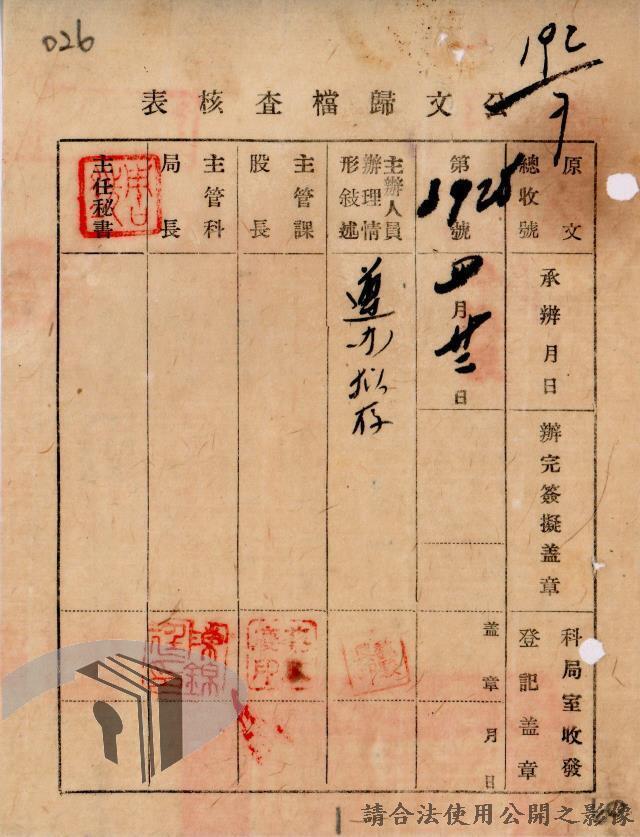 026
192
7
公文歸檔查核表
原文
總收號
承辦月日
辦完簽擬蓋章
科局室收發
登記蓋章
第1928號
四月廿二日
蓋章
月日
主辦人員
辦理情
形敍述
遵办拟存
主管課
股長
主管科
局長
主任秘書
請合法使用公開之影像